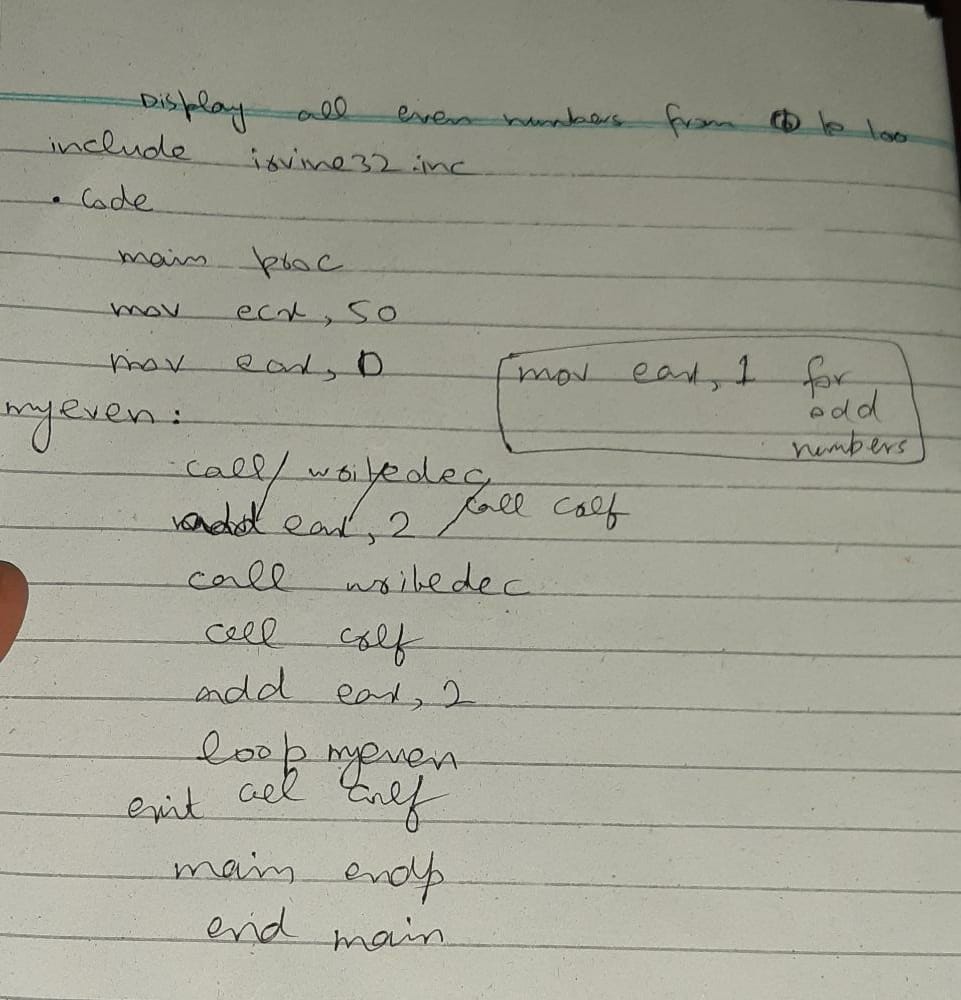 Display all even numbers from 0 to 100
include irvine32.inc
. Code
main proc
mov ecx, 50
mov eax, 0
mov eax, 1 for
odd
numbers
myeven:
call writedec
add eax, 2 call crlf
call writedec
cell crlf
add eax, 2
loop myeven
exit crlf
main endp
end main